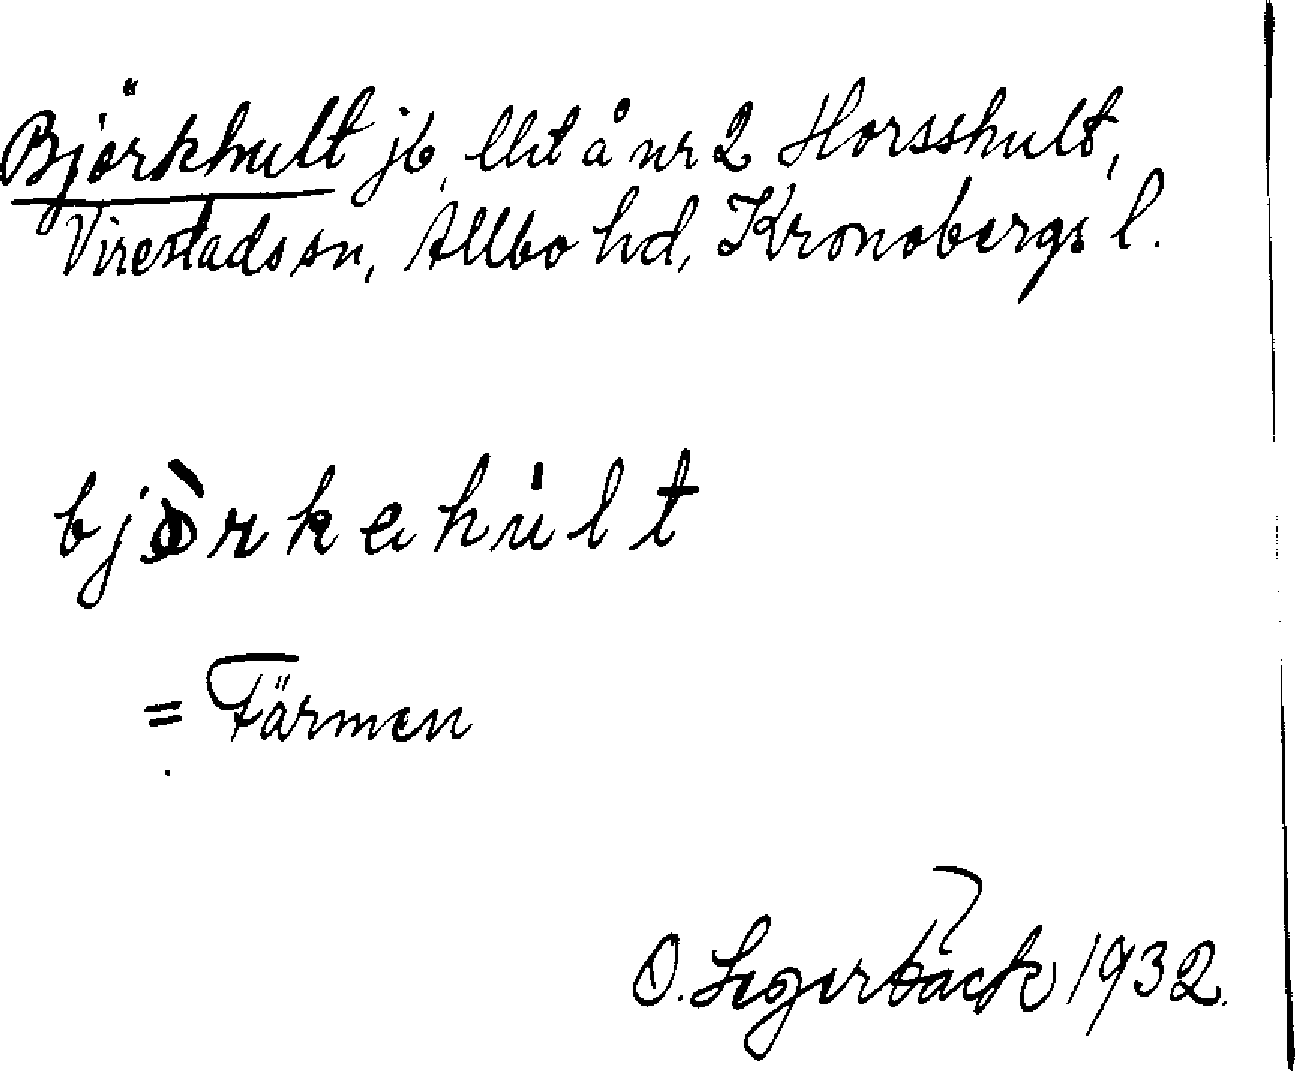 Björkhult jb, llit å nr 2 Horsshult,
Virestads sn, Allbo hd, Kronobergs l.
bjòrkahúlt
= Färmen
O. Segerbäck 1932.